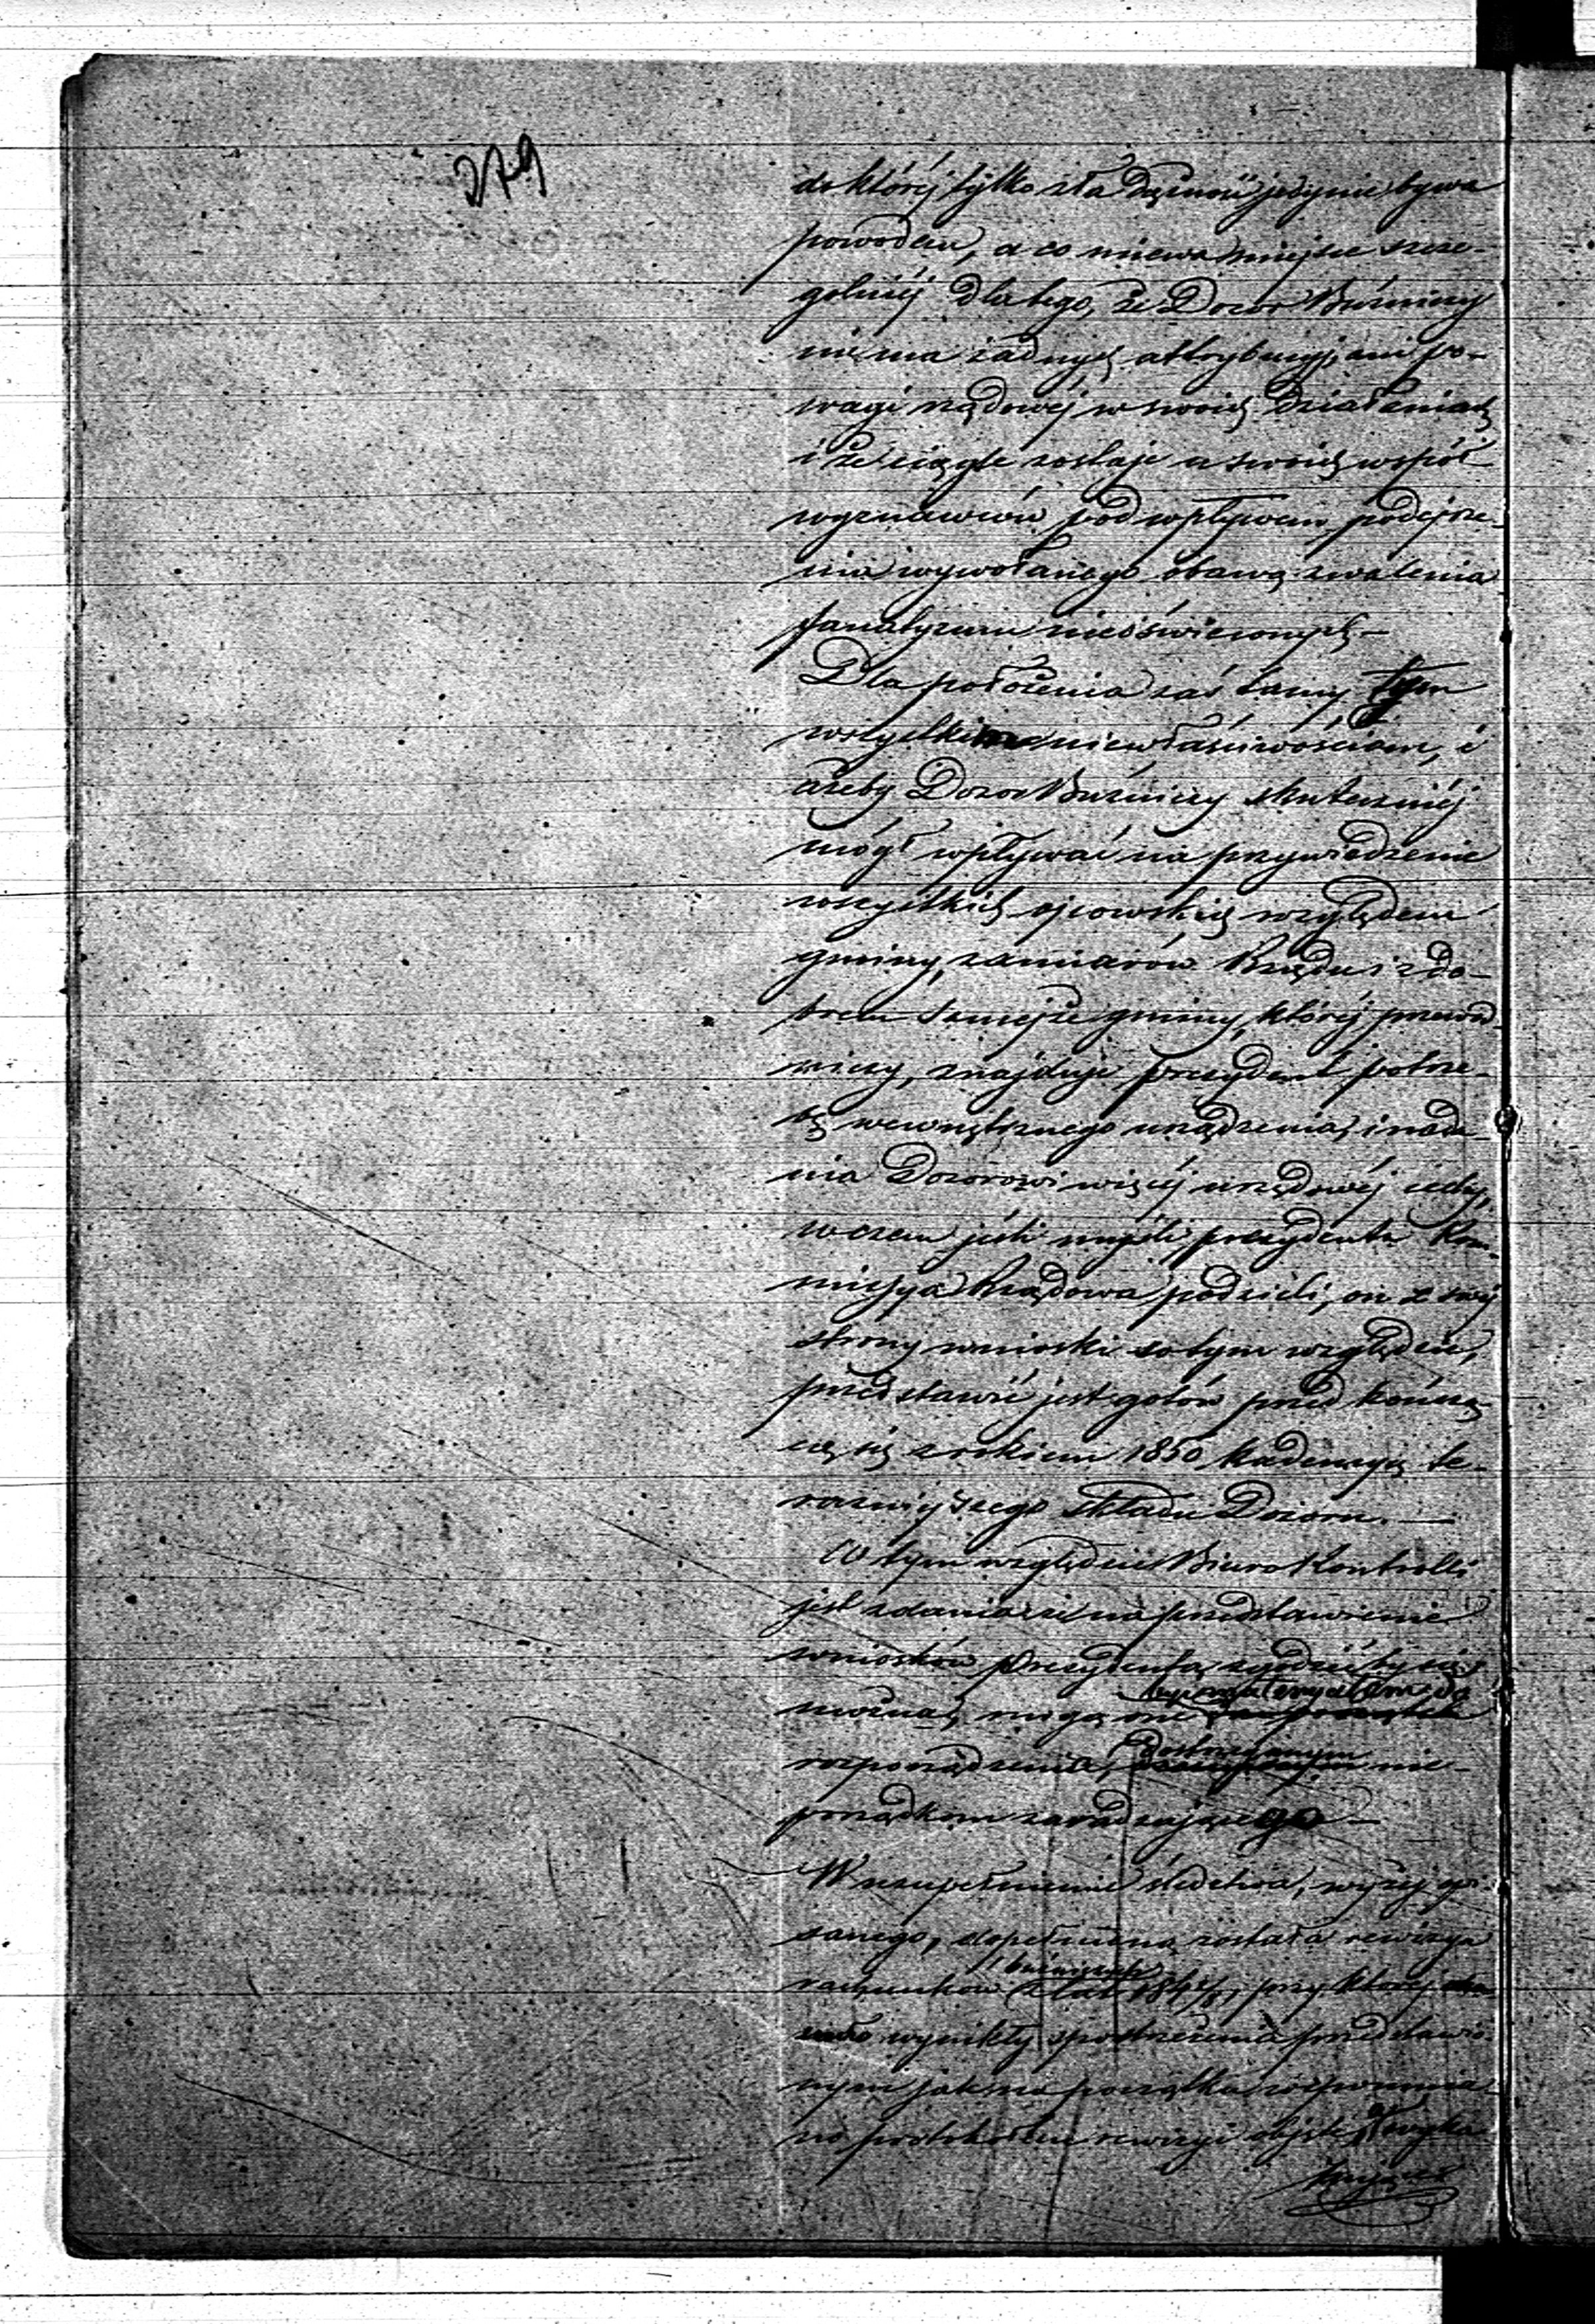 279
do której tylko zła dążność jedynie bywa
powodem, a co miewa miejsce szcze-
gólniéj dla tego, że Dozór Bużniczy
niema żadnych attrybucyj, ani po-
wagi rządowéj w swoich działaniach
i że ciągle zostaje u swoich współ-
wyznawców pod wpływem podejrze-
nia wywołanego obawą zwalenia
fanatyzmu nieoświeconych. —
Dla położenia zaś tamy tym
wszystkim niewłaściwościom, i
ażeby Dozór Bużniczy skuteczniéj
mógł wpływać na przywiedzenie
wszystkich ojcowskich względem
gminy, zamiarów Rządu i z do-
brem tamejże gminy, któréj przewod-
niczy, znajduje prezydent potrze-
bę wewnętrznego urządzenia, i nada-
nia Dozorowi więcéj urzędowéj cechy,
w czem jeśli myśli prezydenta Kom-
missya Rządowa podzieli, on z swéj
strony wnioski w tym względzie,
przedstawić jest gotów przed kończą-
cą się z rokiem 1850 kadencyą te-
raźniejszego składu Dozoru. —
W tym względzie Biuro Kontrolli
jest zdania że na przedstawienie
wniosków prezydenta, zgodzić by się
można, mogą one
rozporządzenia, dostrzeganym nie-
porządkom zaradzającego —
W uzupełnienie śledztwa, wyżej opi-
sanego, dopełnioną została rewizya
rachunków bużniczych z lat 184 przy której
wynikły spostrzeżenia przedstawio-
nym jak na początku wspomnia-
no protokołem rewizyi objęte,